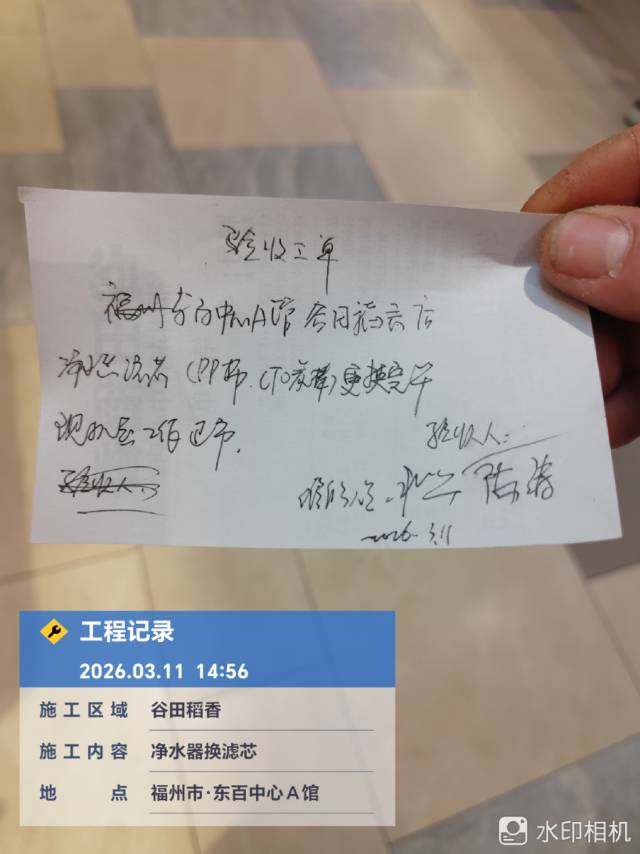 验收工单
福州东百中心A馆谷田稻香店
净水器滤芯(PP棉、CTO炭棒)更换完毕
现机器工作正常。
验收人:
验收人:
2026.3.11
工程记录
2026.03.11 14:56
施工区域 谷田稻香
施工内容 净水器换滤芯
地点 福州市·东百中心A馆
水印相机